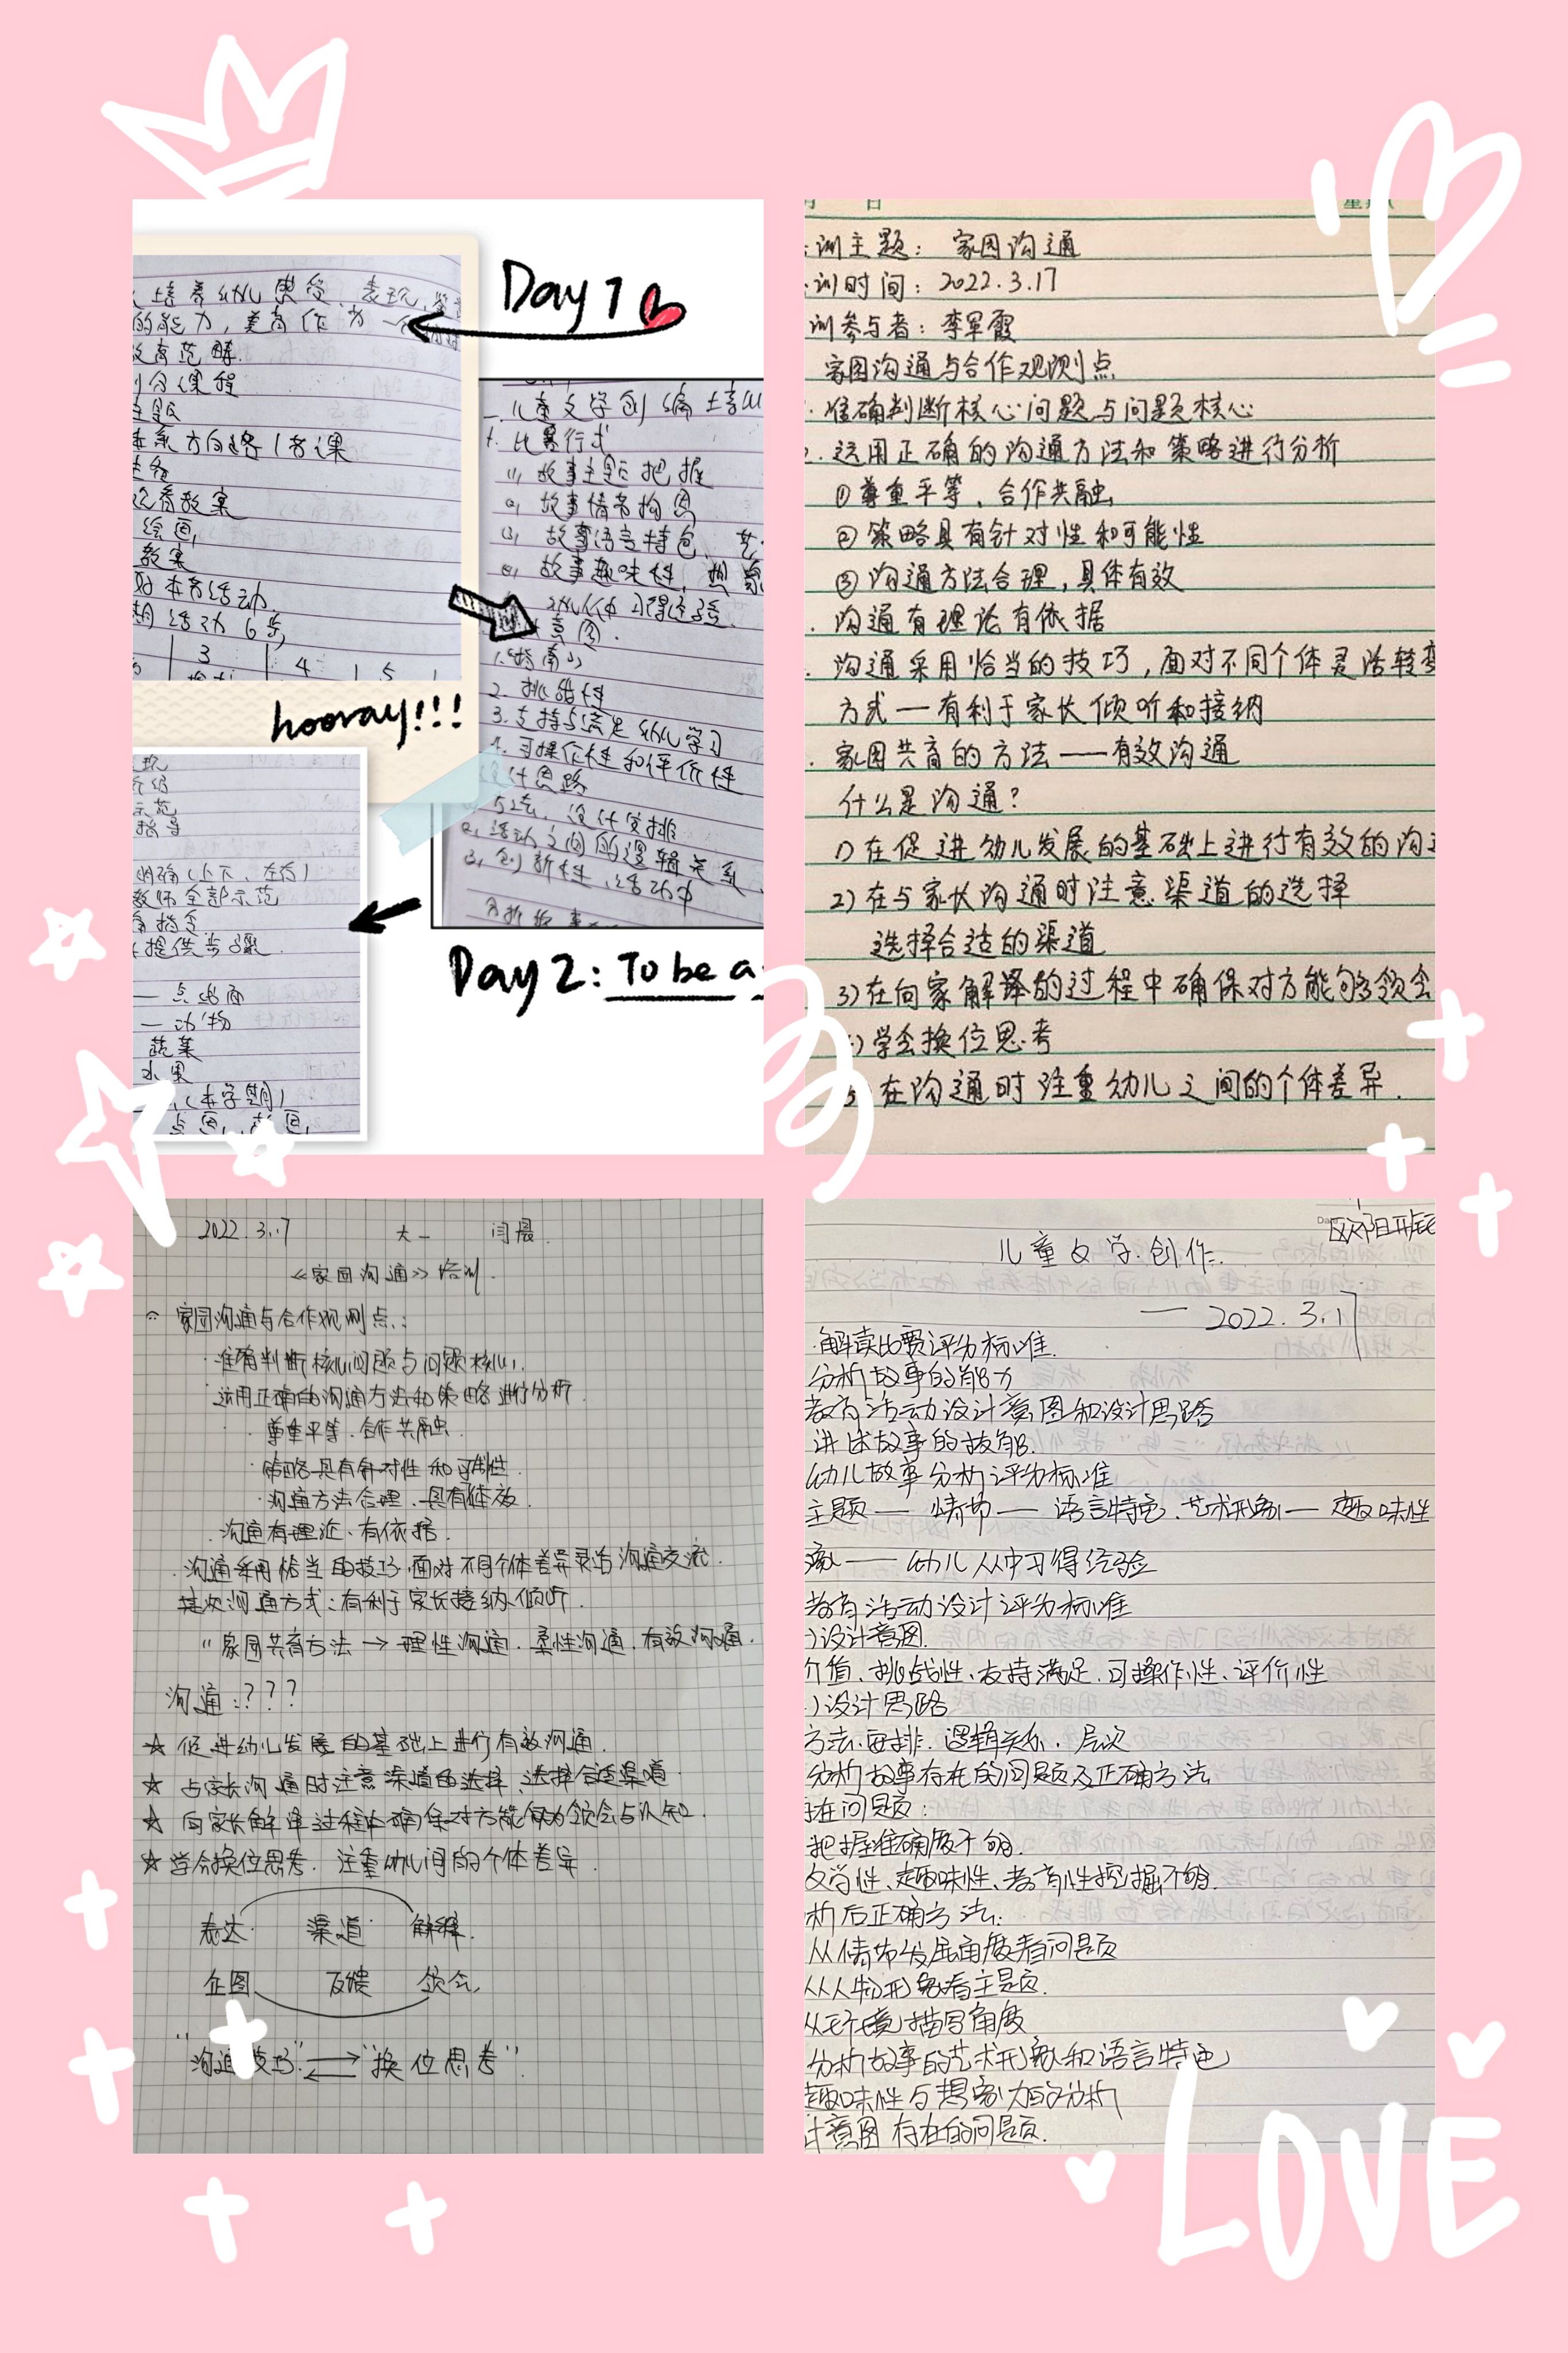 Day 1
培养幼儿感受、表现、
的能力,美育作为一个
教育范畴
分课程
主题
体系方向路1名课
观看教案
绘画
教案
对本节活动
期活动6节
3 4 5
hooray!!!
儿童文学创编培训
1. 比赛形式
(1) 故事主题把握
(2) 故事情节构图
(3) 故事语言特色、艺
(4) 故事趣味性,想象
幼儿从中习得经验
意图.
1.《指南》
2. 挑战性
3. 支持与满足幼儿学习
4. 可操作性和评价性
设计思路
1. 方法、设计安排
2. 活动之间的逻辑关系
3. 创新性、活动中
分析故事
示范
指导
明确(上下、左右)
教师全部示范
指令
提供步骤.
— 点线面
— 动物
蔬菜
水果
(本学期)
点画,
Day 2: To be a
月 日 星期
训主题: 家园沟通
训时间: 2022.3.17
训参与者: 李军霞
家园沟通与合作观测点
准确判断核心问题与问题核心
2. 运用正确的沟通方法和策略进行分析
①尊重平等、合作共融
②策略具有针对性和可能性
③沟通方法合理,具体有效
沟通有理论有依据
沟通采用恰当的技巧,面对不同个体灵活转变
方式—有利于家长倾听和接纳
家园共育的方法——有效沟通
什么是沟通?
1)在促进幼儿发展的基础上进行有效的沟通
2)在与家长沟通时注意渠道的选择
选择合适的渠道
3)在向家解释的过程中确保对方能够领会
4)学会换位思考
5)在沟通时注重幼儿之间的个体差异.
2022.3.17 大一 闫晨.
《家园沟通》培训.
一 家园沟通与合作观测点:
·准确判断核心问题与问题核心.
·运用正确的沟通方法和策略进行分析.
·尊重平等.合作共融.
·策略具有针对性和可能性.
·沟通方法合理.具有体效.
·沟通有理论、有依据.
·沟通采用恰当的技巧.面对不同个体差异灵活沟通交流.
其次沟通方式:有利于家长接纳、倾听.
家园共育方法→理性沟通.柔性沟通.有效沟通.
沟通:???
☆ 促进幼儿发展的基础上进行有效沟通.
☆ 与家长沟通时注意渠道的选择、选择合适渠道
☆ 向家长解释过程中确保对方能够领会与认知.
☆ 学会换位思考.注重幼儿间的个体差异.
表达. 渠道. 解释.
企图 反馈 领会.
"沟通技巧"⇌"换位思考"
欧阳
儿童文学创作.
—2022.3.17
·解读比赛评分标准.
分析故事的能力
教育活动设计意图和设计思路
讲述故事的技能.
幼儿故事分析评分标准
主题——情节——语言特色、艺术形象—趣味性
象——幼儿从中习得经验
教育活动设计评分标准
)设计意图.
价值、挑战性、支持满足.可操作性、评价性
)设计思路
方法、安排.逻辑关系.层次
分析故事存在的问题及正确方法
存在问题:
把握准确度不够.
文学性、趣味性、教育性挖掘不够.
析后正确方法:
从情节发展角度看问题
从人物形象看主题.
从环境描写角度
分析故事的艺术形象和语言特色
趣味性与想象力的分析
计意图存在的问题.
LOVE